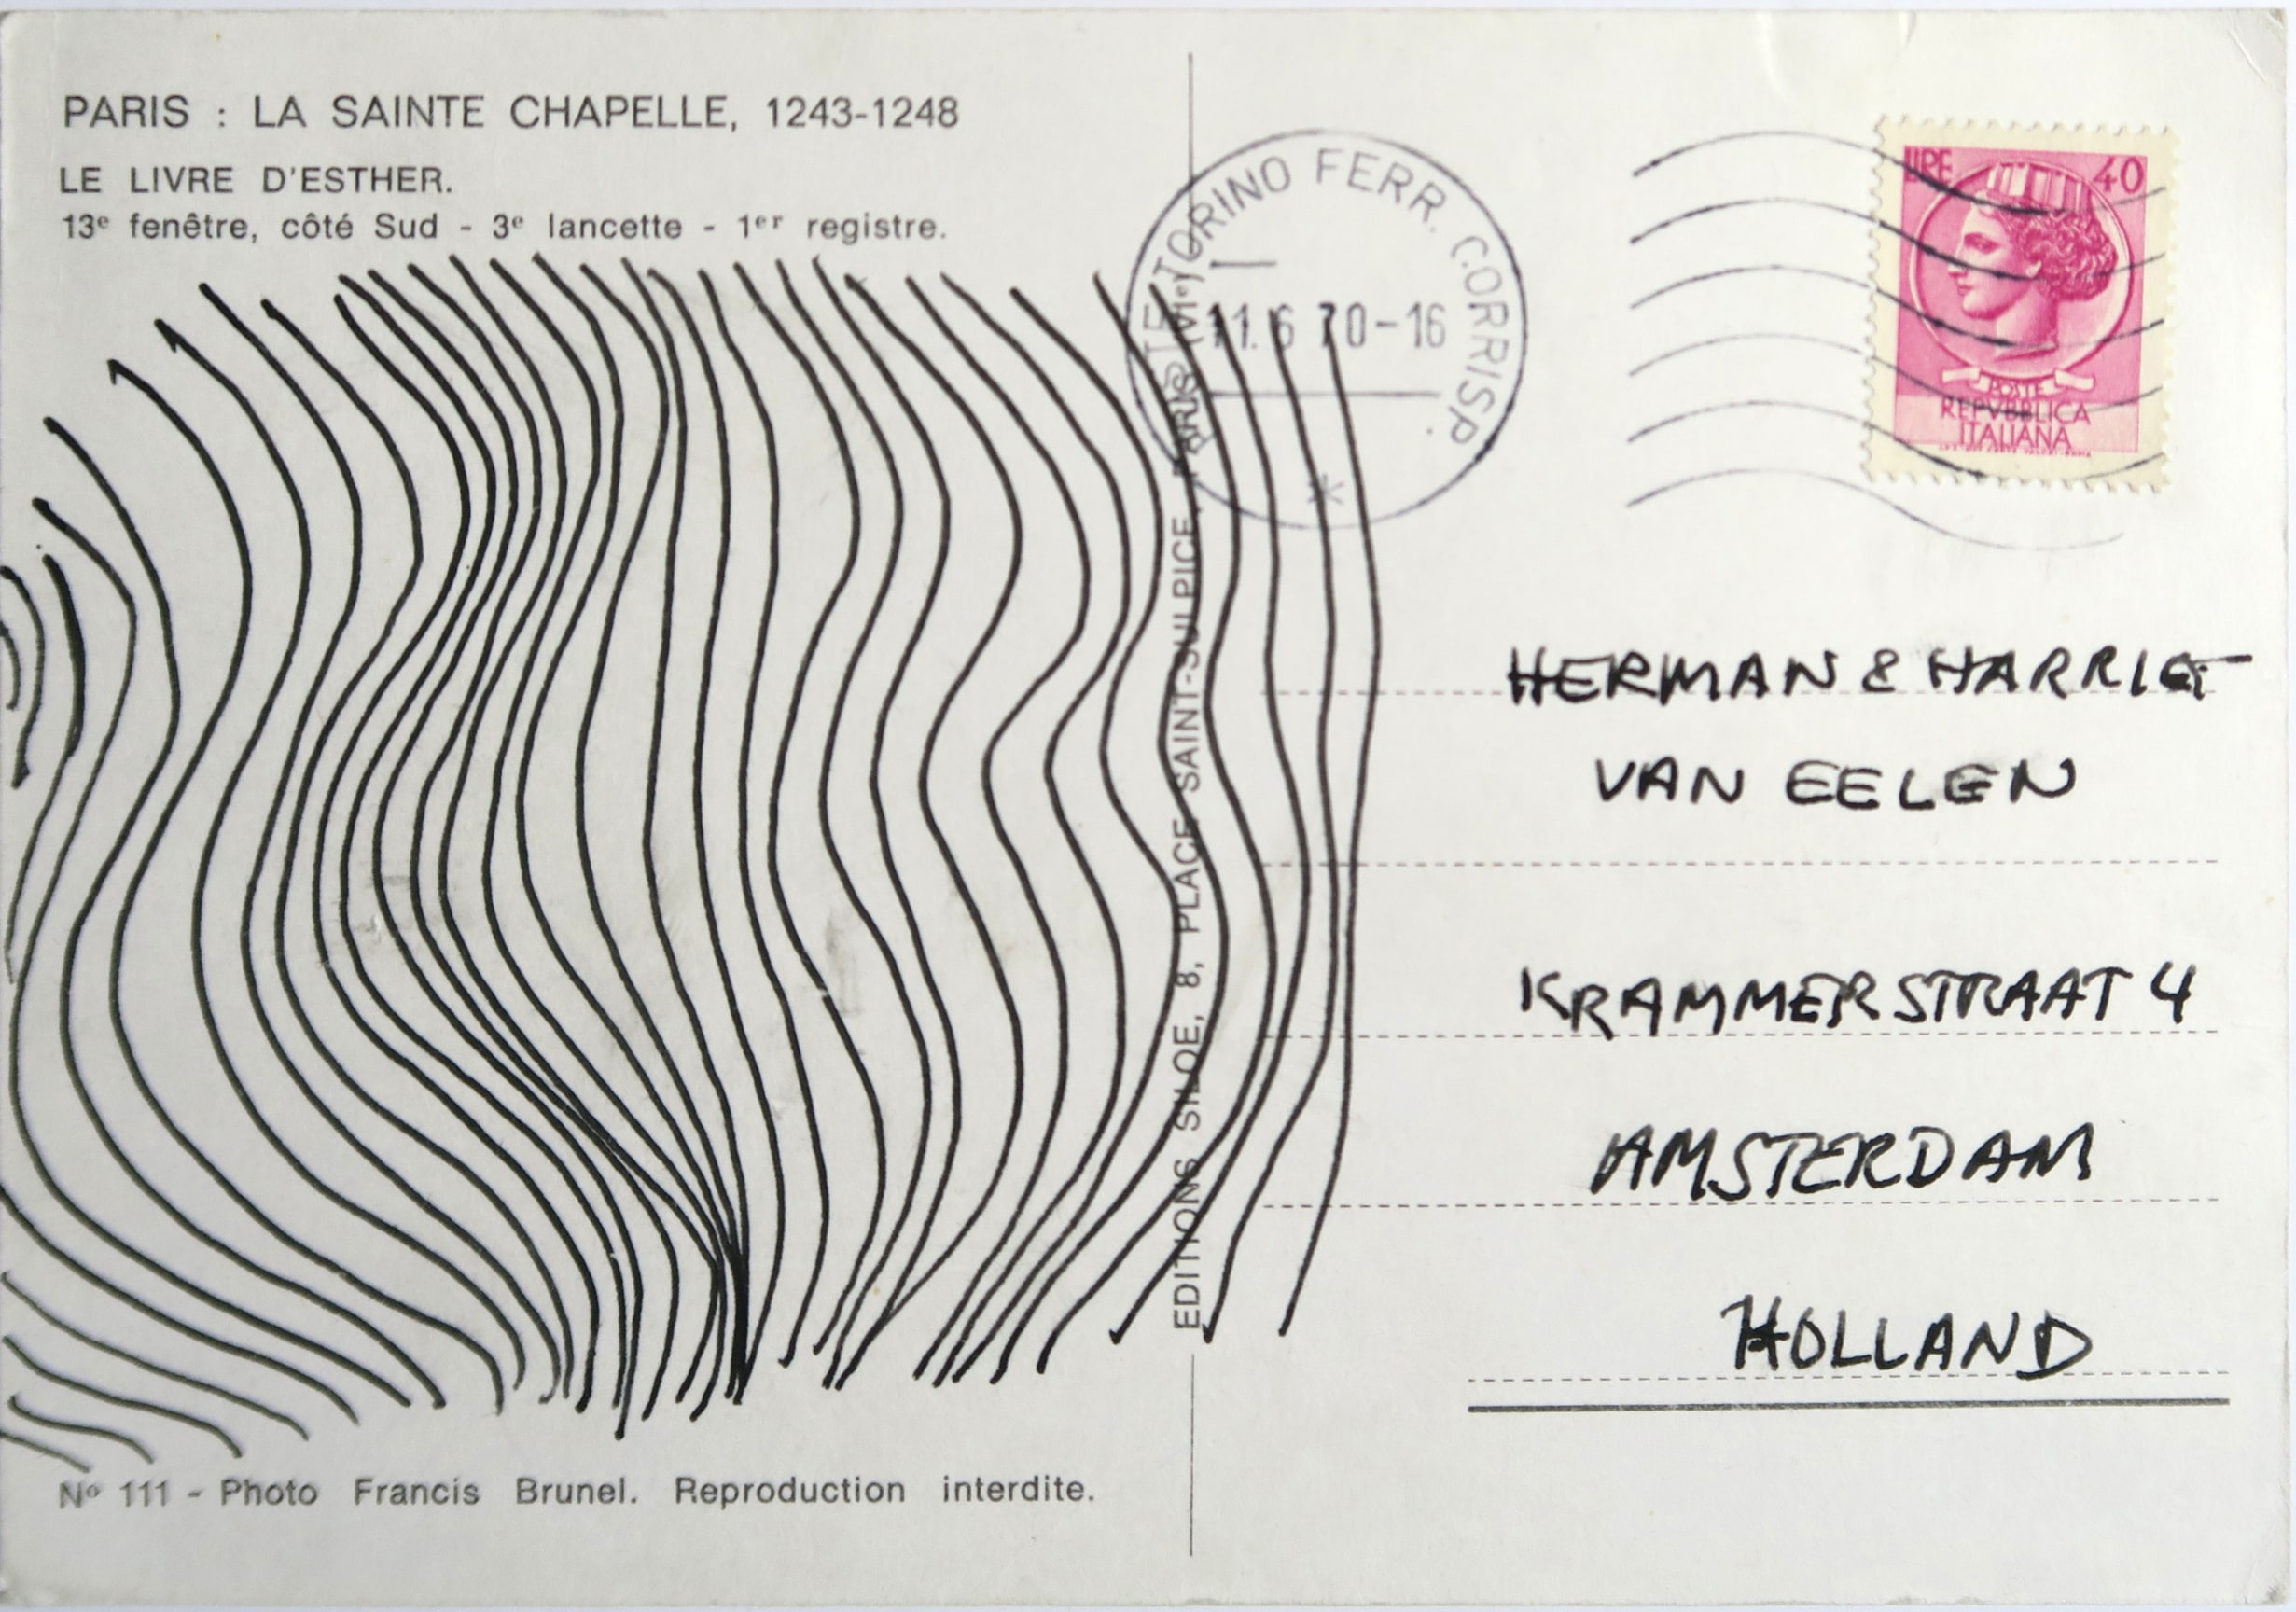 PARIS : LA SAINTE CHAPELLE, 1243-1248
LE LIVRE D'ESTHER.
13e fenêtre, côté Sud - 3e lancette - 1er registre.
EDITIONS SILOE, 8, PLACE SAINT-SULPICE, PARIS (VIe)
TORINO FERR. CORRISP.
11.6 70-16
LIRE 40
POSTE
REPVBBLICA
ITALIANA
HERMAN & HARRIET
VAN EELEN
KRAMMERSTRAAT 4
AMSTERDAM
HOLLAND
No 111 - Photo Francis Brunel. Reproduction interdite.